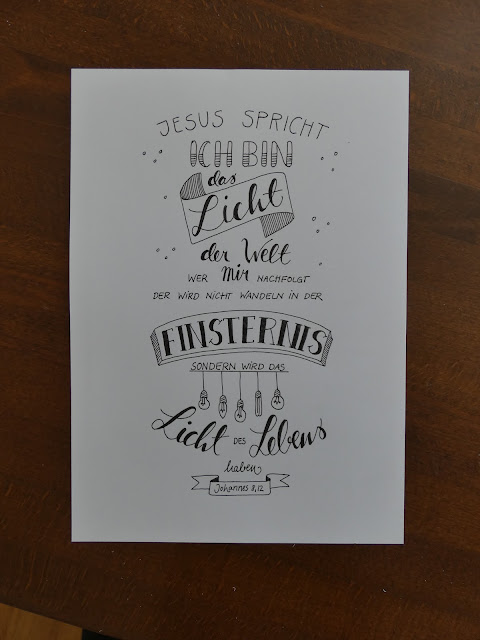 JESUS SPRICHT
ICH BIN
das
Licht
der Welt
WER Mir NACHFOLGT
DER WIRD NICHT WANDELN IN DER
FINSTERNIS
SONDERN WIRD DAS
Licht DES Lebens
haben
Johannes 8,12